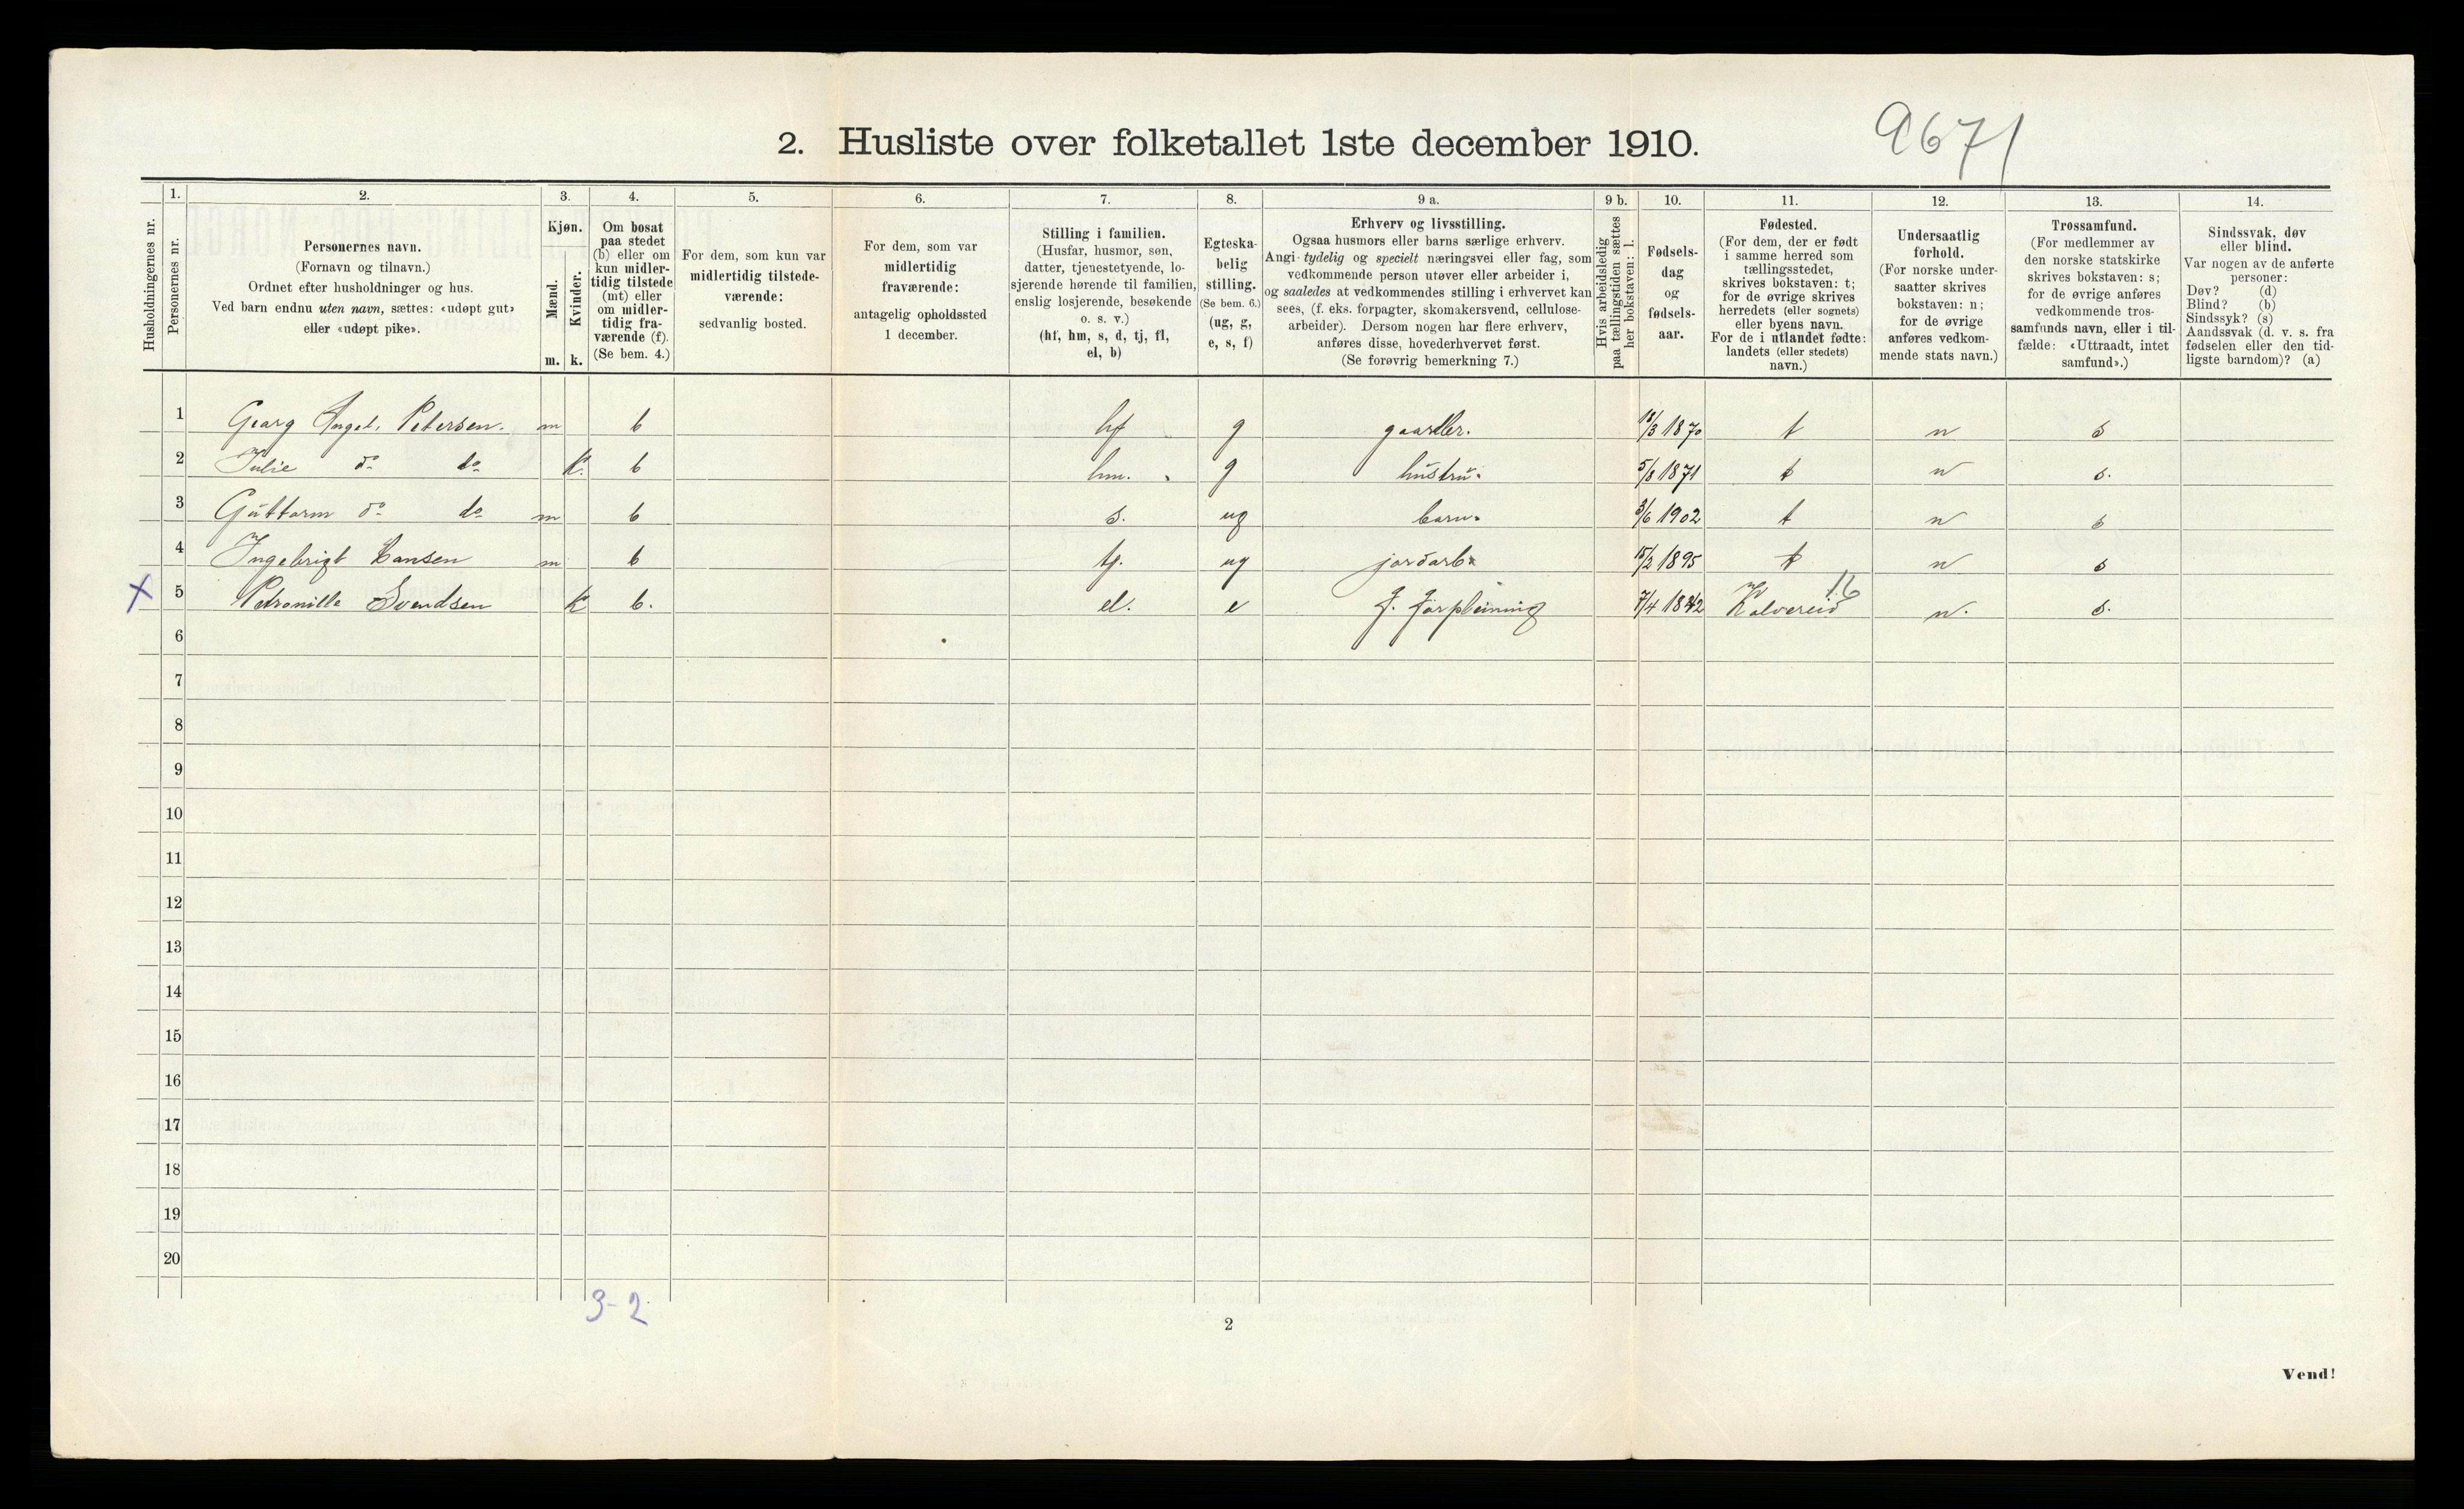 9671
2. Husliste over folketallet 1ste december 1910.
1. 2. 3. 4. 5. 6. 7. 8. 9 a. 9 b. 10. 11. 12. 13. 14.
Husholdningernes nr.
Personernes nr.
Personernes navn.
(Fornavn og tilnavn.)
Ordnet efter husholdninger og hus.
Ved barn endnu uten navn, sættes: «udøpt gut»
eller «udøpt pike».
Kjøn.
Mænd.
Kvinder.
m. k.
Om bosat
paa stedet
(b) eller om
kun midler-
tidig tilstede
(mt) eller
om midler-
tidig fra-
værende (f).
(Se bem. 4.)
For dem, som kun var
midlertidig tilstede-
værende:
sedvanlig bosted.
For dem, som var
midlertidig
fraværende:
antagelig opholdssted
1 december.
Stilling i familien.
(Husfar, husmor, søn,
datter, tjenestetyende, lo-
sjerende hørende til familien,
enslig losjerende, besøkende
o. s. v.)
(hf, hm, s, d, tj, fl,
el, b)
Egteska-
belig
stilling.
(Se bem. 6.)
(ug, g,
e, s, f)
Erhverv og livsstilling.
Ogsaa husmors eller barns særlige erhverv.
Angi tydelig og specielt næringsvei eller fag, som
vedkommende person utøver eller arbeider i,
og saaledes at vedkommendes stilling i erhvervet kan
sees, (f. eks. forpagter, skomakersvend, cellulose-
arbeider). Dersom nogen har flere erhverv,
anføres disse, hovederhvervet først.
(Se forøvrig bemerkning 7.)
Hvis arbeidsledig
paa tællingstiden sættes
her bokstaven: l.
Fødsels-
dag
og
fødsels-
aar.
Fødested.
(For dem, der er født
i samme herred som
tællingsstedet,
skrives bokstaven: t;
for de øvrige skrives
herredets (eller sognets)
eller byens navn.
For de i utlandet fødte:
landets (eller stedets)
navn.)
Undersaatlig
forhold.
(For norske under-
saatter skrives
bokstaven: n;
for de øvrige
anføres vedkom-
mende stats navn.)
Trossamfund.
(For medlemmer av
den norske statskirke
skrives bokstaven: s;
for de øvrige anføres
vedkommende tros-
samfunds navn, eller i til-
fælde: «Uttraadt, intet
samfund».)
Sindssvak, døv
eller blind.
Var nogen av de anførte
personer:
Døv? (d)
Blind? (b)
Sindssyk? (s)
Aandssvak (d. v. s. fra
fødselen eller den tid-
ligste barndom)? (a)
1 Georg Angel. Petersen. m b hf g gaardbr. 1870 t n s
2 Julie do do k. b hm. g hustru. 5/8 1871 t n s.
3 Guttorm do do m b s. ug barn. 3/6 1902 t n s
4 Ingebrigt Hansen m b tj. ug jordarb. 15/2 1895 t n s
X 5 Petronille Svendsen k b. el. e f. forpleining 7/4 1842 Kolvereid 16 n. s.
6
7
8
9
10
11
12
13
14
15
16
17
18
19
20
3-2
2
Vend!